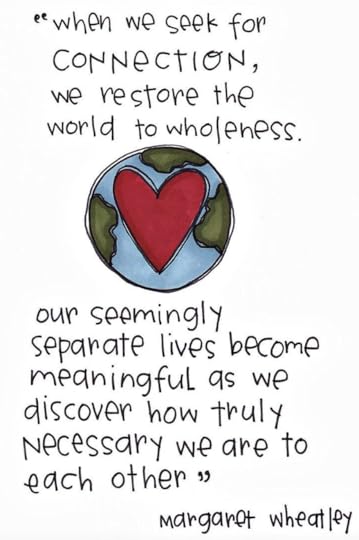 "when we seek for
CONNECTION,
we restore the
world to wholeness.
our seemingly
separate lives become
meaningful as we
discover how truly
necessary we are to
each other"
margaret wheatley